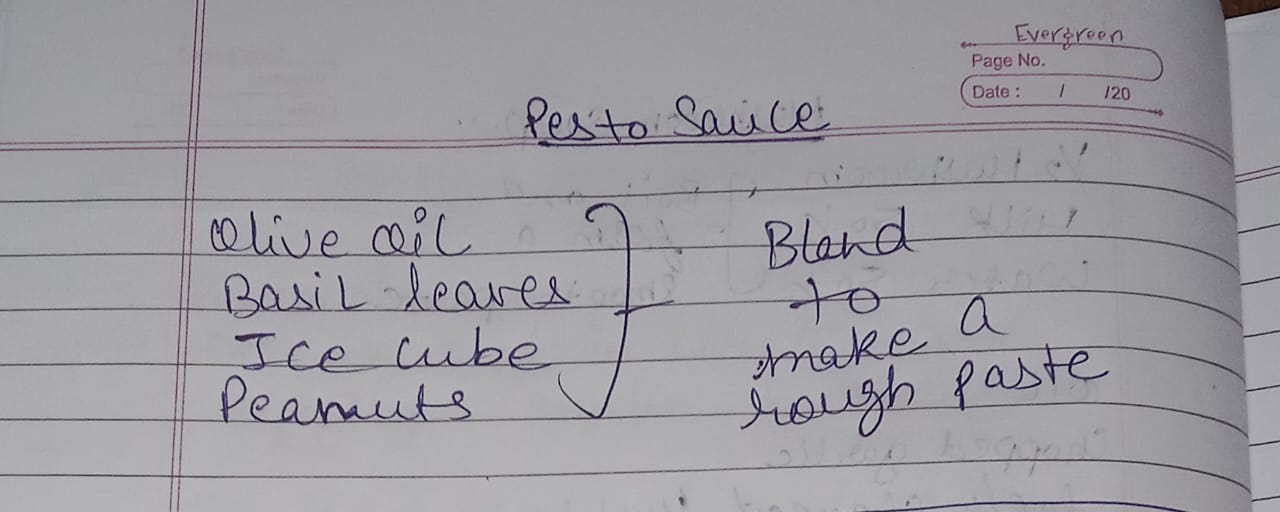 Evergreen
Page No.
Date : / /20
Pesto Sauce
Olive Oil
Basil leaves
Ice cube
Peanuts
Blend
to
make a
rough paste